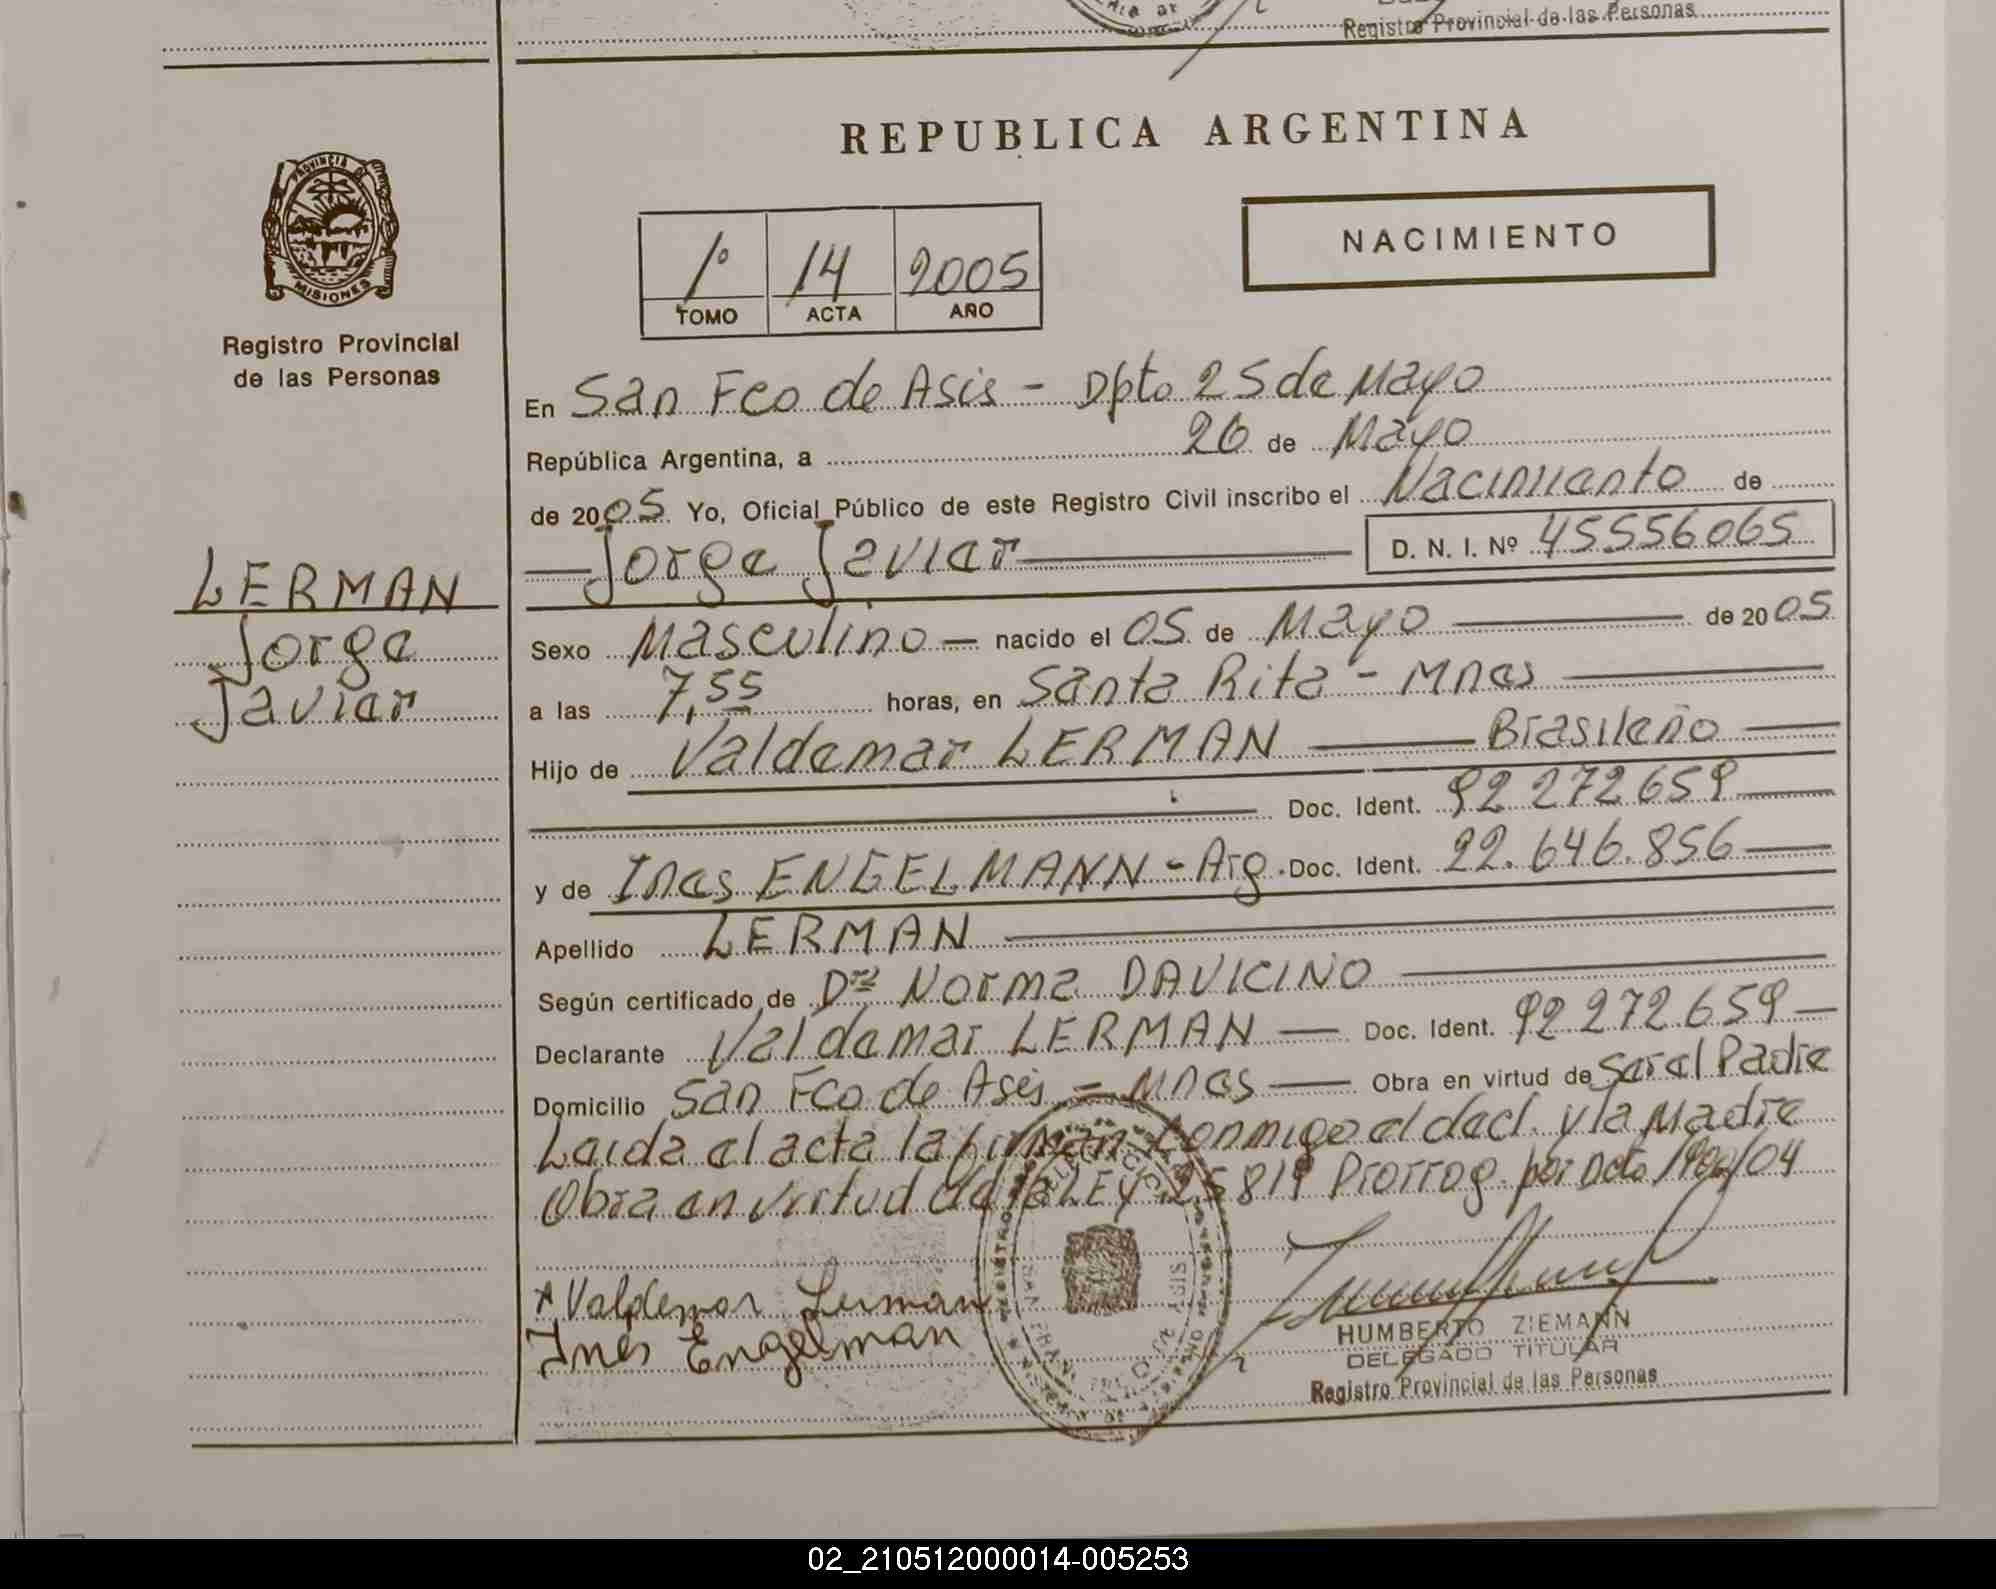 Registro Provincial de las Personas
PROVINCIA DE
MISIONES
Registro Provincial
de las Personas
LERMAN
Jorge
Javier
REPUBLICA ARGENTINA
NACIMIENTO
1º 14 2005
TOMO ACTA AÑO
En San Fco de Asis - Dpto 25 de Mayo
República Argentina, a 26 de Mayo
de 2005 Yo, Oficial Público de este Registro Civil inscribo el Nacimiento de
Jorge Javier D. N. I. Nº 45556065
Sexo Masculino nacido el 05 de Mayo de 2005
a las 7,55 horas, en Santa Rita - Mnes
Hijo de Valdemar LERMAN Brasileño
Doc. Ident. 92 272 659
y de Ines ENGELMANN - Arg. Doc. Ident. 22.646.856
Apellido LERMAN
Según certificado de Dra Norma DAVICINO
Declarante Valdemar LERMAN Doc. Ident. 92 272 659
Domicilio San Fco de Asis = Mnes Obra en virtud de Ser el Padre
Leida el acta la firman conmigo el decl. y la Madre
Obra en virtud de la LEY 25819 Prorrog. por Dcto /04
Valdemar Lerman
Inés Engelman
HUMBERTO ZIEMANN
DELEGADO TITULAR
Registro Provincial de las Personas
02_210512000014-005253